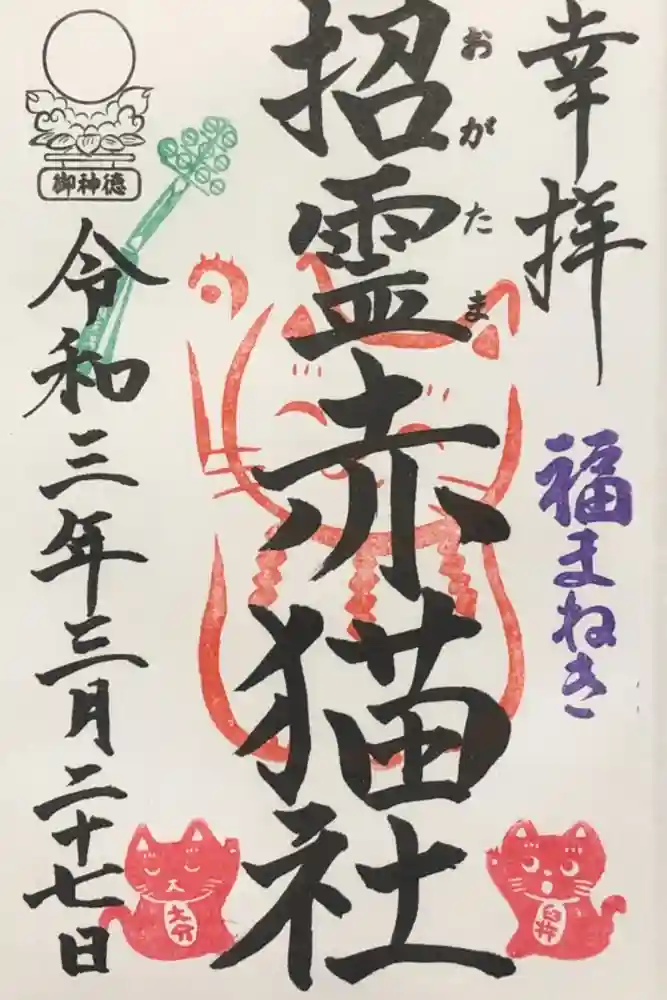 幸拝
福まねき
招霊赤猫社
おがたま
御神徳
令和三年三月二十七日
大分
臼杵